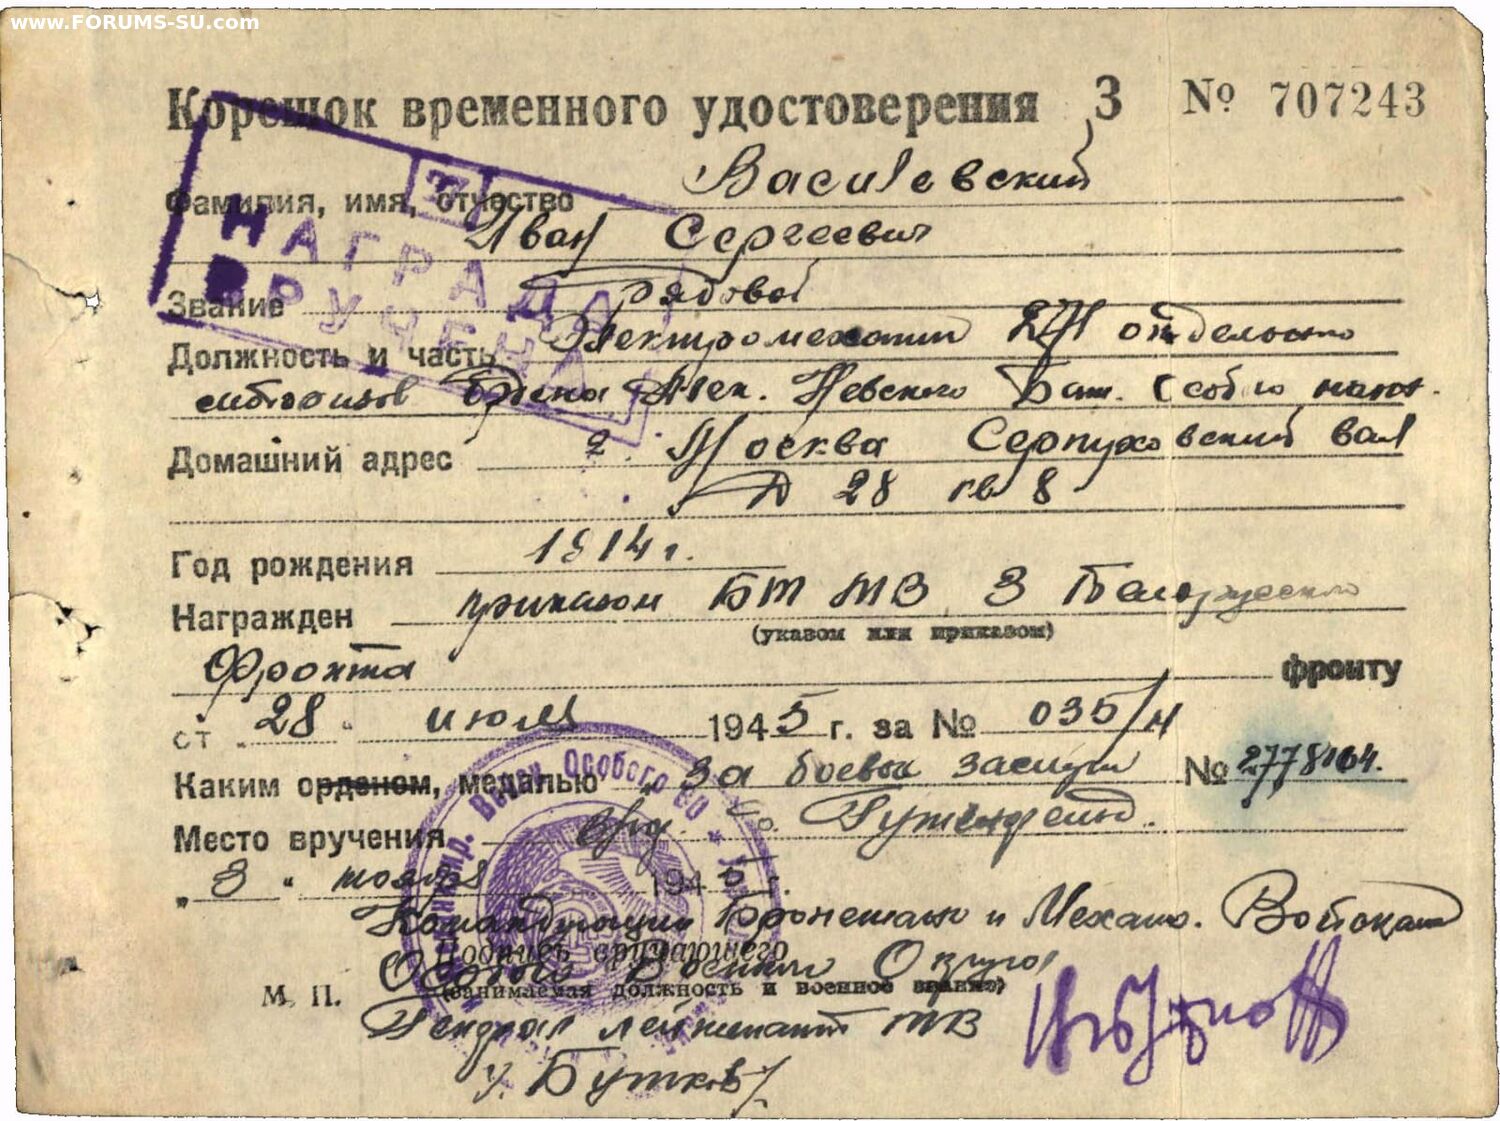 www.FORUMS-SU.com
Корешок временного удостоверения З № 707243
Фамилия, имя, отчество Василевский
Иван Сергеевич
Звание рядовой
Должность и часть Электромеханик 271 отдельного
ордена Алек. Невского Бат. Особого назн.
Домашний адрес г. Москва Серпуховский вал
Д 28 кв 8
Год рождения 1914 г.
Награжден приказом БТ МВ 3 Белорусского
(указом или приказом)
Фронта фронту
от "28" июля 1945 г. за № 035/н
Каким орденом, медалью За боевые заслуги № 2778164.
Место вручения
"3" ноября 1945 г.
Командующий Бронетанк и Механ. Войсками
Подпись вручающего
Особого Военного Округа
М. П. (занимаемая должность и военное звание)
Генерал лейтенант ТВ
Бутков
НАГРАДА
ВРУЧЕНА
Особого ВО